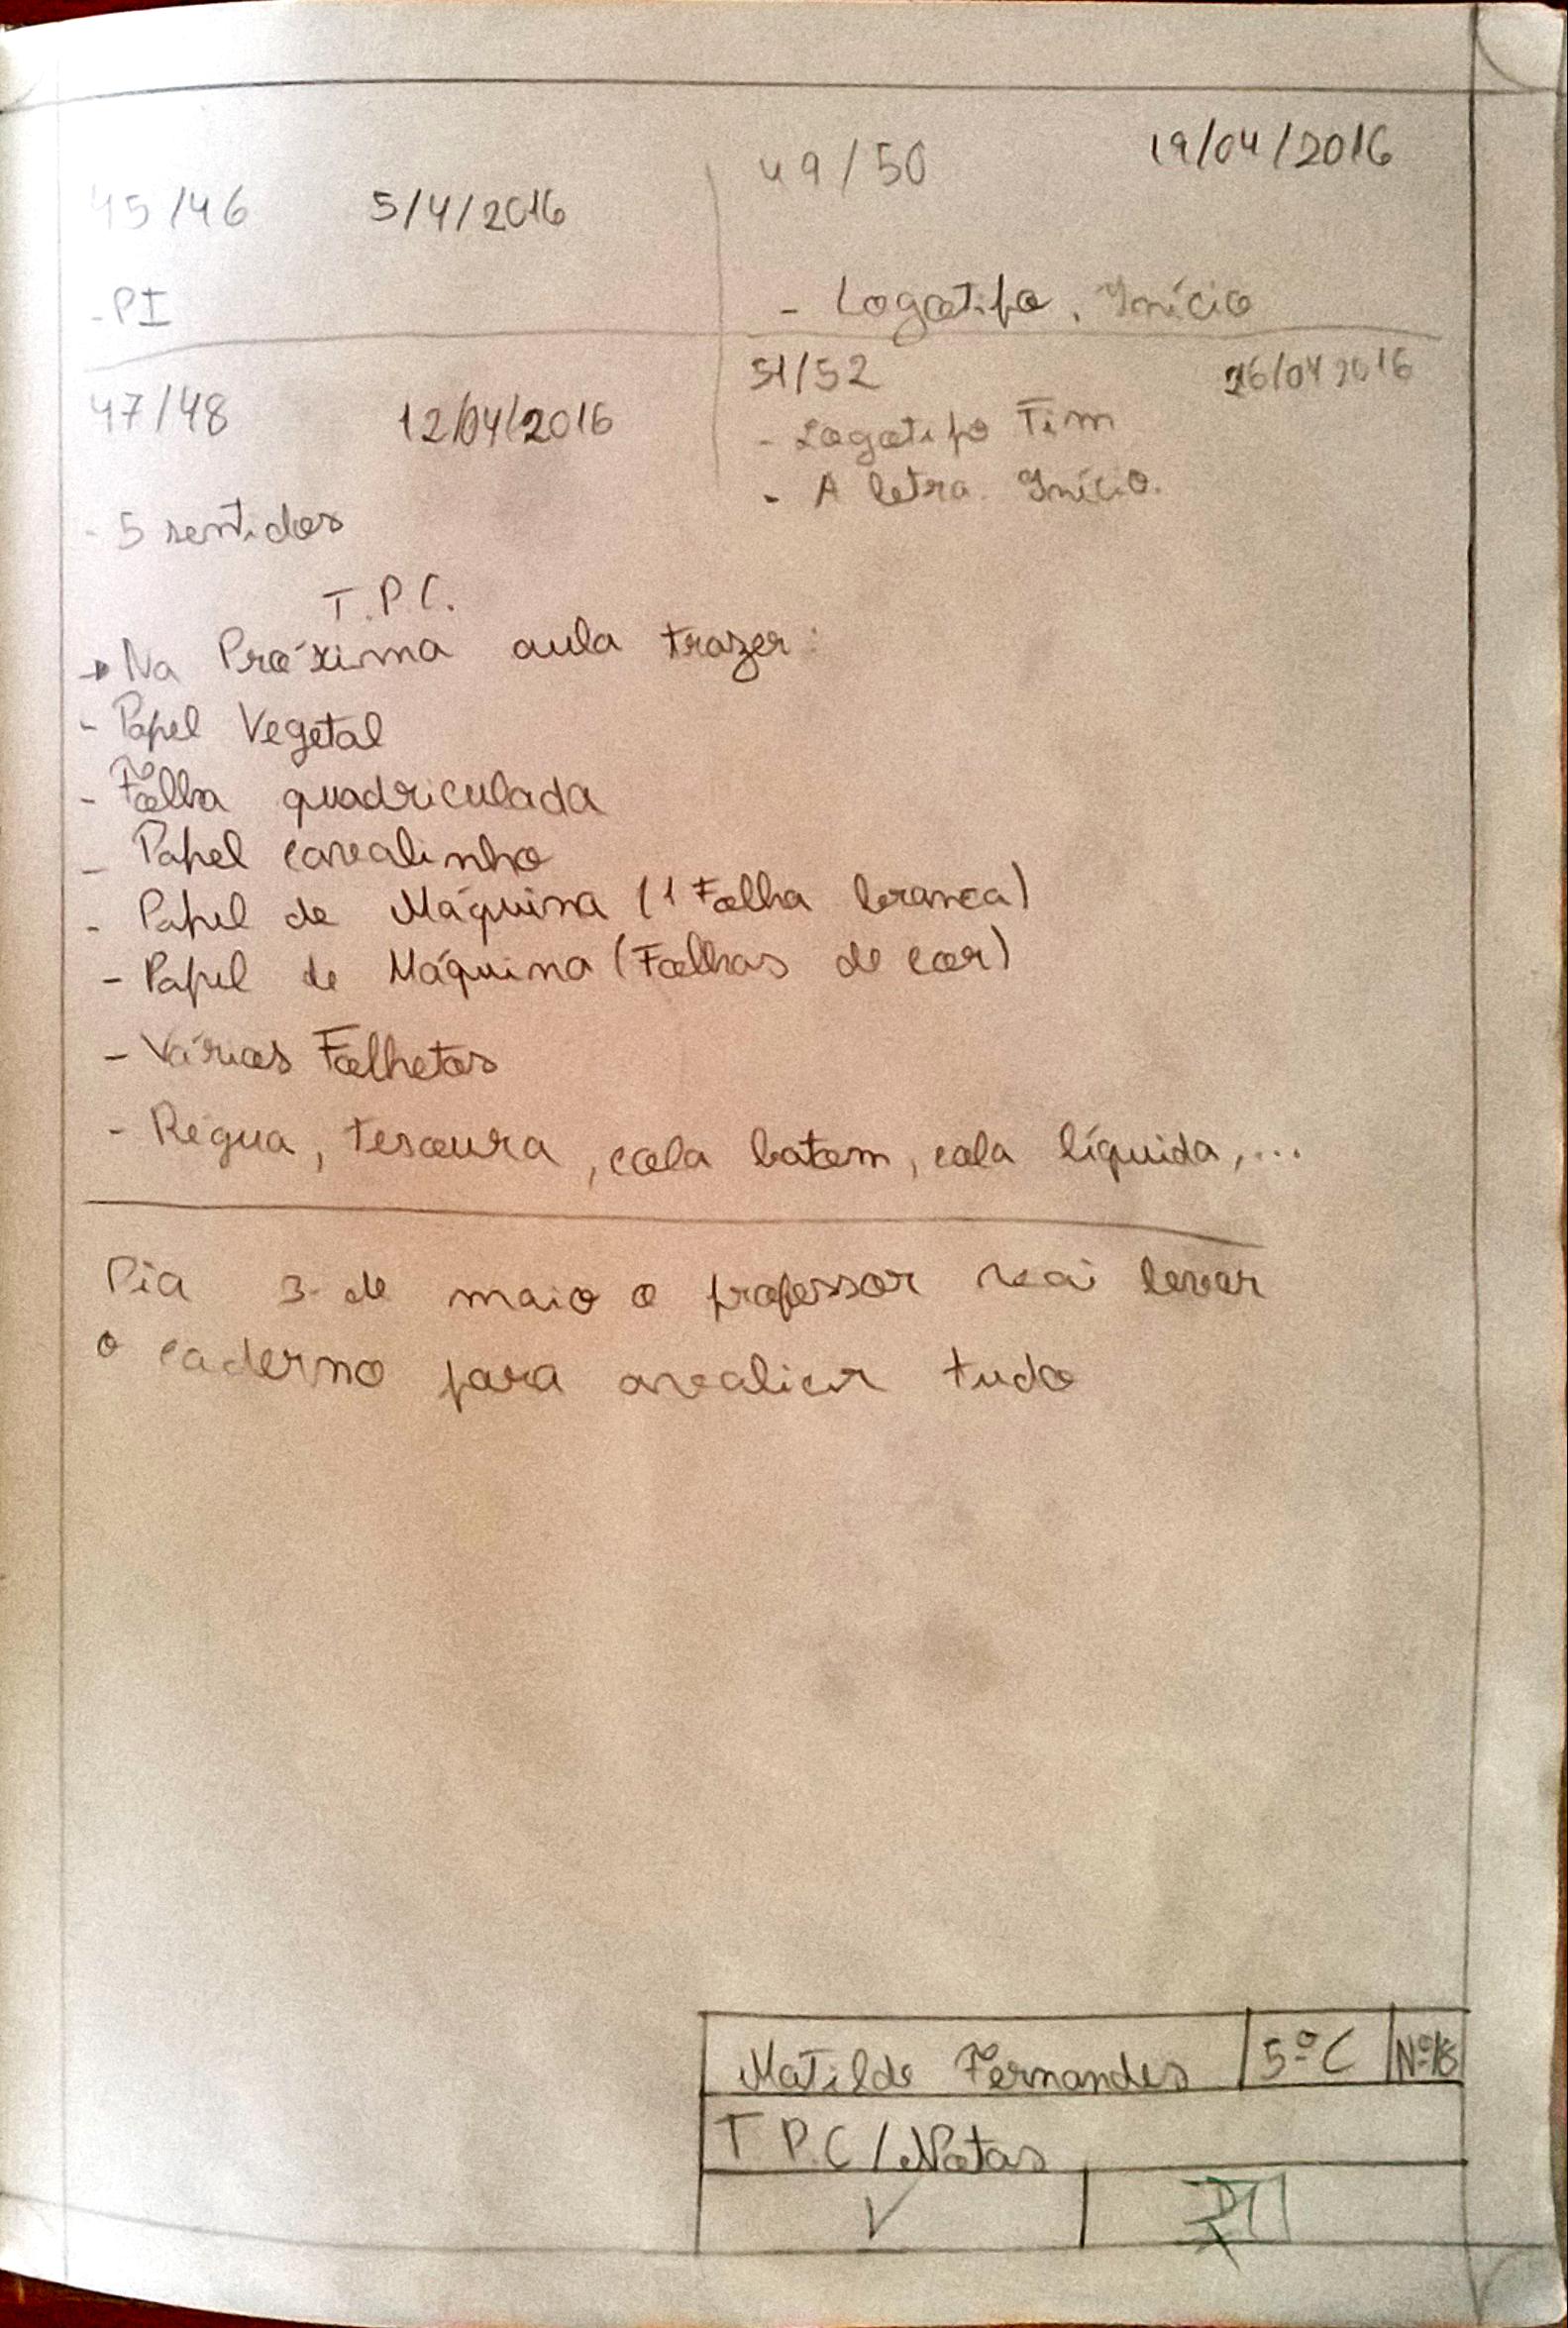 45/46 5/4/2016
- PI
47/48 12/04/2016
- 5 sentidos
49/50 19/04/2016
- Logotipo. Início
51/52 26/04 2016
- Logotipo Fim
- A letra. Início.
T.P.C.
→ Na Próxima aula trazer:
- Papel Vegetal
- Folha quadriculada
- Papel cavalinho
- Papel de Máquina (1 Folha branca)
- Papel de Máquina (Folhas de cor)
- Vários Folhetos
- Régua, tesoura, cola batom, cola líquida,...
Dia 3 de maio o professor vai levar
o caderno para avaliar tudo
Matilde Fernandes 5ºC Nº18
T P.C / Notas